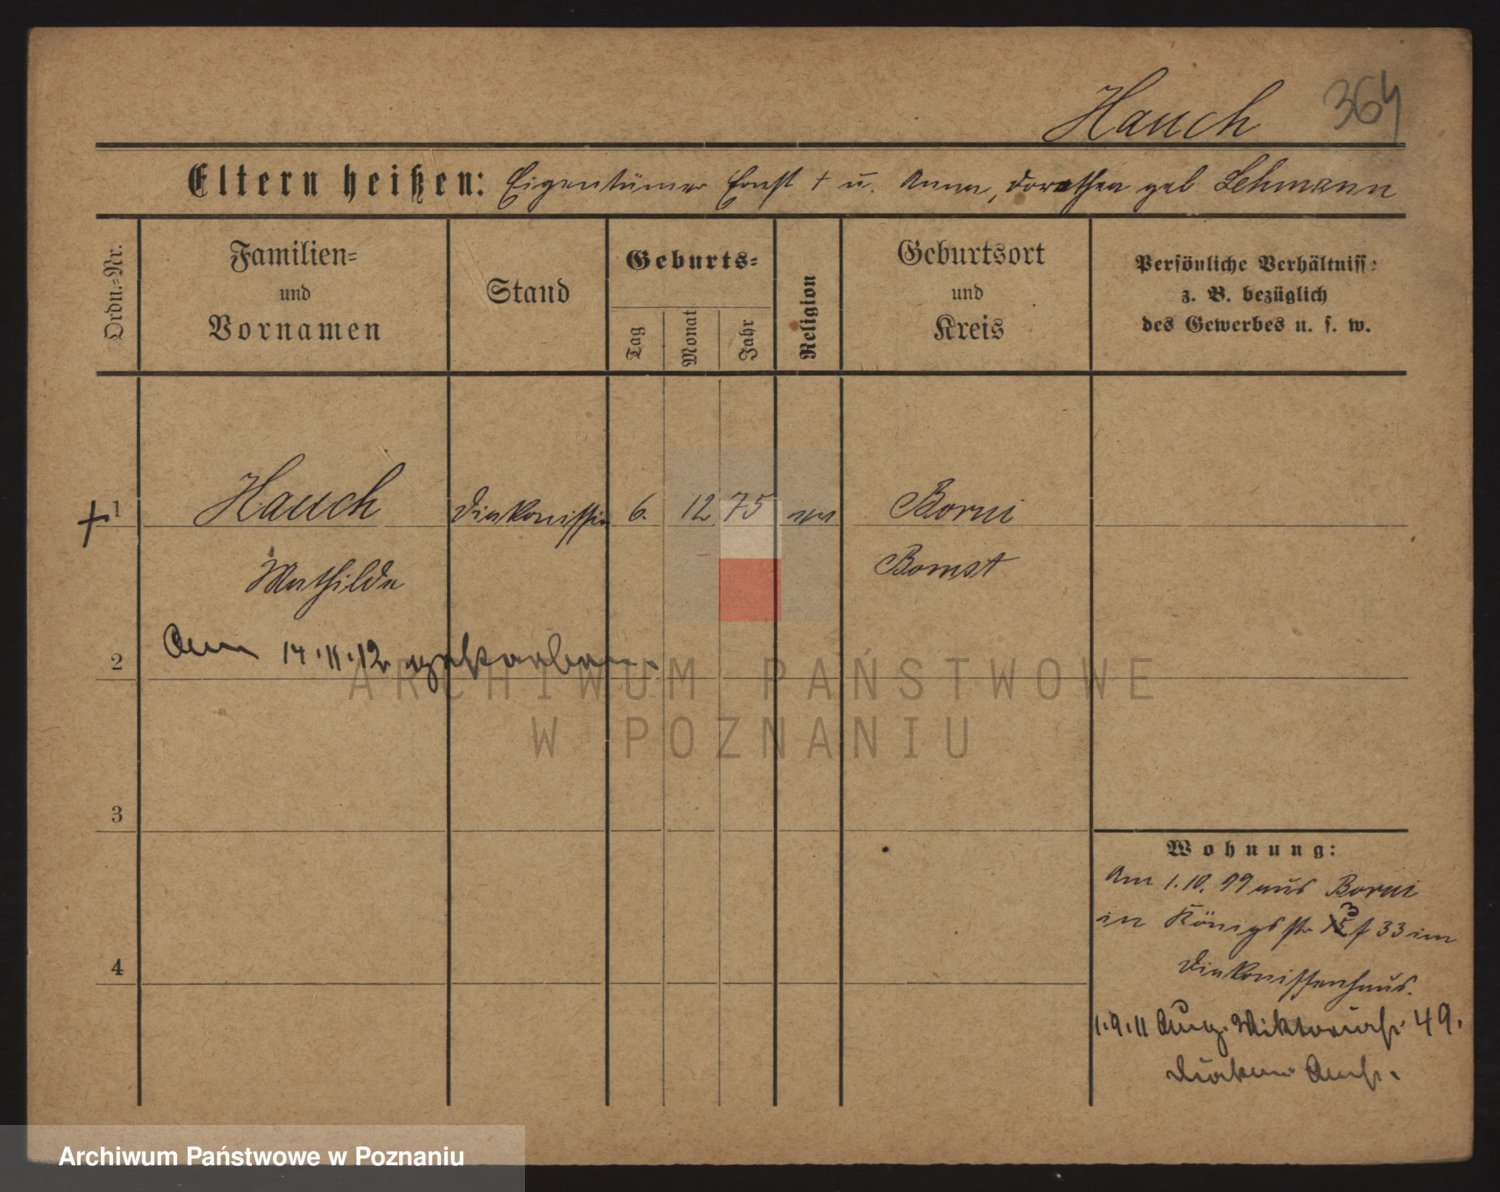 Hauch 364
Eltern heißen: Eigentümer Ernst † u. Anna, Dorothea geb Lehmann
Ordn.-Nr.
Familien-
und
Vornamen
Stand
Geburts-
Tag
Monat
Jahr
Religion
Geburtsort
und
Kreis
Persönliche Verhältniss-
z. B. bezüglich
des Gewerbes u. s. w.
+ 1 Hauch Diakonissin 6. 12 75 ev Borui
Mathilde Bomst
2 Am 14.11.12 gestorben.
ARCHIWUM PAŃSTWOWE
W POZNANIU
3
Wohnung:
Am 1.10.99 aus Borui
in Königsstr 3 33 im
4
Diakonissenhaus.
1.9.11 Aug. Viktoriastr 49.
Diakon Anst.
Archiwum Państwowe w Poznaniu